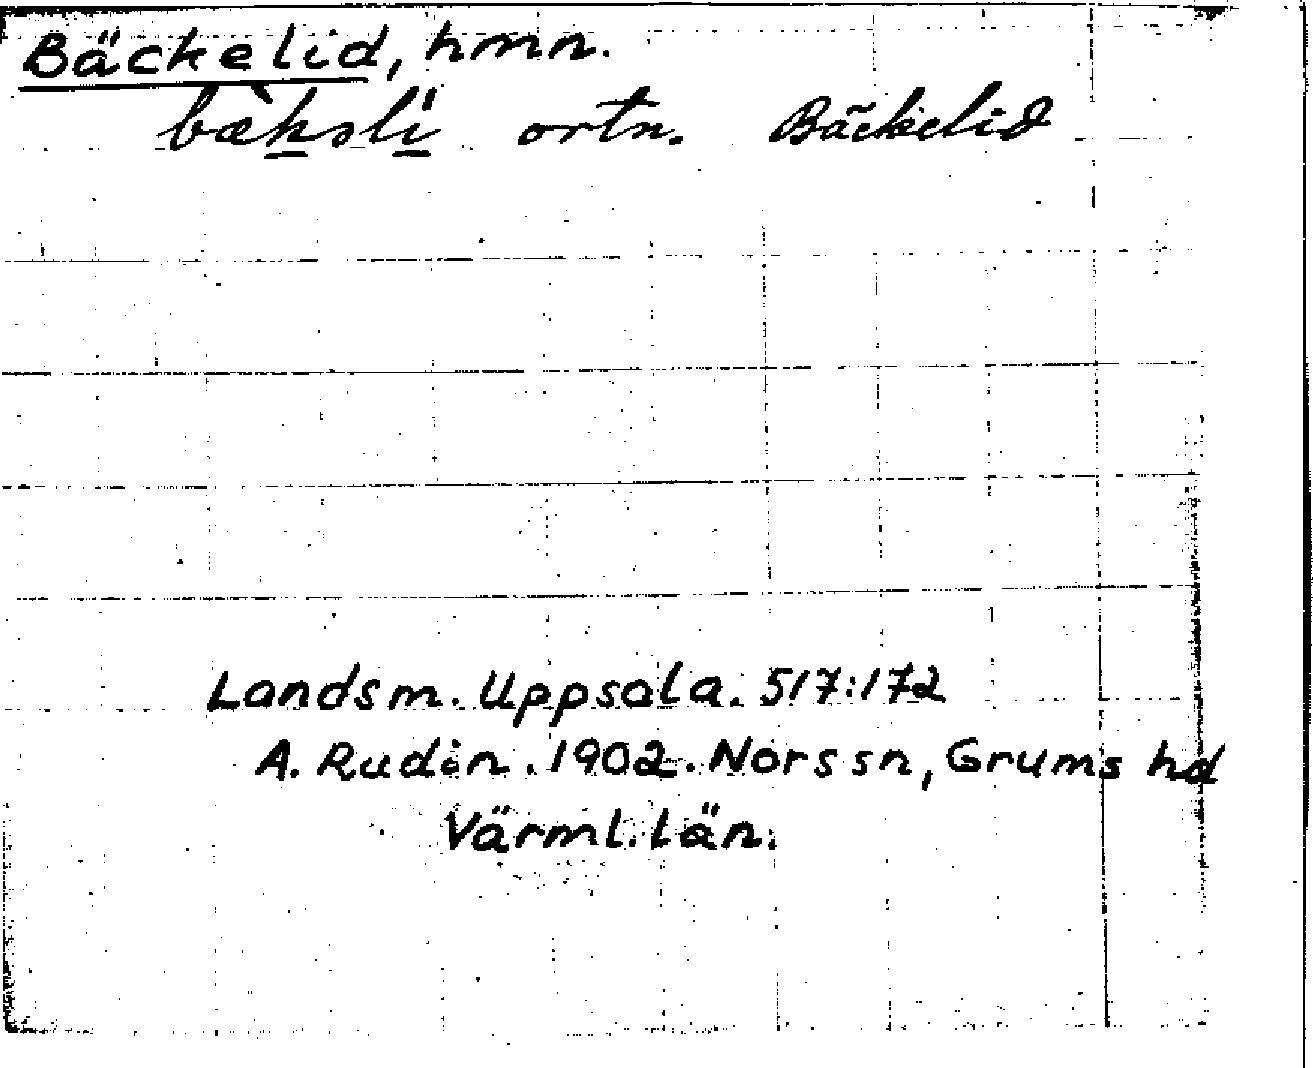 Bäckelid, hmn.
bæ̀kəli̍ ortn. Bäckelid
Landsm. Uppsala. 517:172
A. Rudin. 1902. Nors sn, Grums hd
Värml. län.